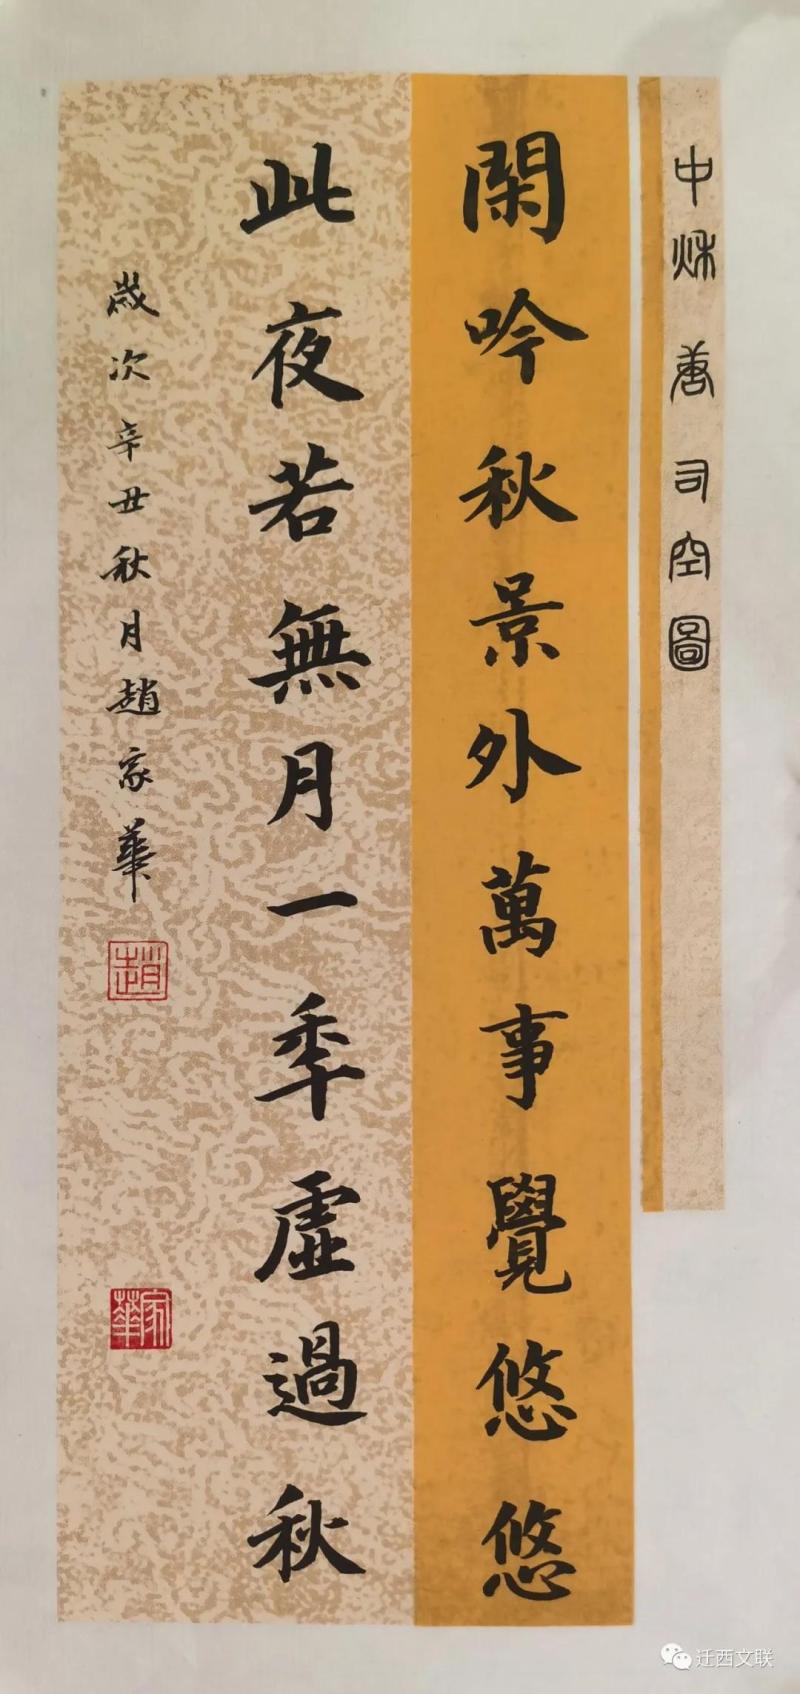 中秌 唐 司空圖
閑吟秋景外萬事覺悠悠
此夜若無月一季虛過秋
歲次辛丑秋月趙家華
趙
家華
迁西文联